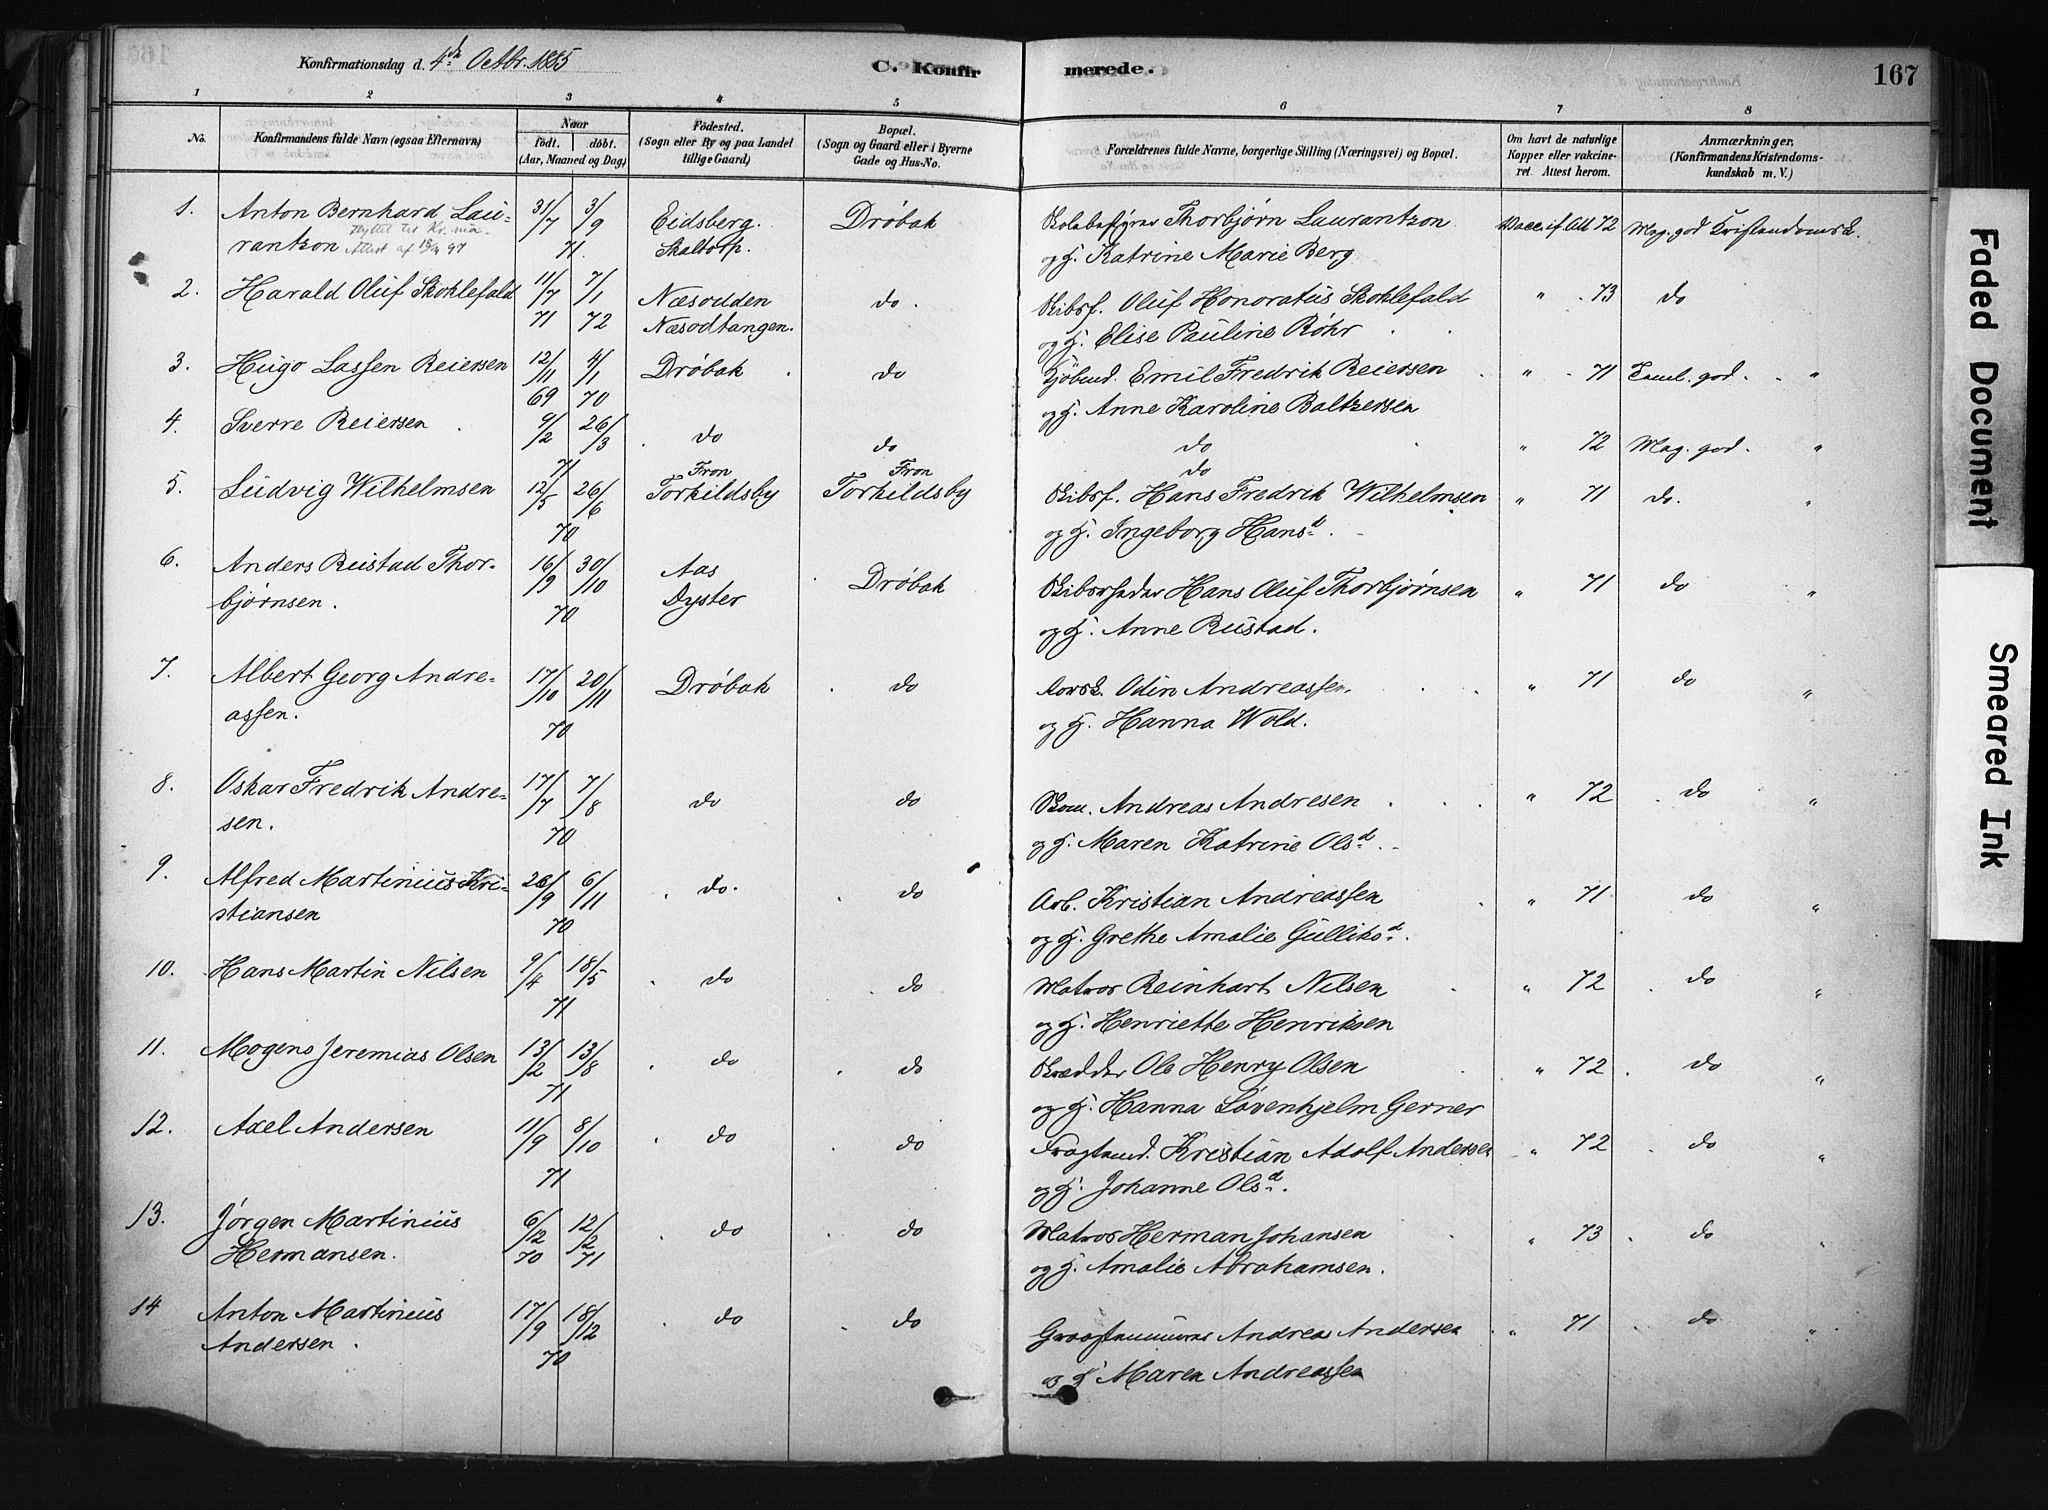 Konfirmationsdag d. 4de Octbr. 1885
C. Konfir merede.
167
1 2 3 4 5 6 7 8
No.
Konfirmandens fulde Navn (ogsaa Efternavn)
Naar
födt. döbt.
(Aar, Maaned og Dag)
Födested.
(Sogn eller By og paa Landet
tillige Gaard)
Bopæl.
(Sogn og Gaard eller i Byerne
Gade og Hus-No.
Forældrenes fulde Navne, borgerlige Stilling (Næringsvei) og Bopæl.
Om havt de naturlige
Kopper eller vakcine-
ret. Attest herom.
Anmærkninger,
(Konfirmandens Kristendoms-
kundskab m. V.)
1. Anton Bernhard Lau- 31/7 3/9 Eidsberg. Drøbak Thorbjørn Laurantzon Vacc. if. Att. 72 Mag. god Kristendomsk.
rantzon 71. Skaltorp. og H. Katrine Marie Berg
Flyttet til Kr.nia
Attest af 18/9 97
2. Harald Oluf Skoklefald 11/7 7/1 Næsodden do. Skibsf. Oluf Honoratus Skoklefald " . 73 do
71 72 Næsodtangen. og H. Elise Pauline Röhr
3. Hugo Lassen Reiersen 12/11 4/1 Drøbak do Kjøbmd. Emil Fredrik Reiersen " . 71 Teml. god. "
69 70 og H. Anne Karoline Baltzersen
4. Sverre Reiersen 9/2 26/3 do do do " 72 Mag. god. "
71 do
5. Ludvig Wilhelmsen 12/5 26/6 Fron Torkildsby Fron Torkildsby Skibsf. Hans Fredrik Wilhelmsen " 71 do. "
70 og H. Ingeborg Hansd.
6. Anders Rustad Thor- 16/9 30/10 Aas Drøbak Skibsreder Hans Oluf Thorbjørnsen " 71 do "
bjørnsen. 70 Dyster og H. Anne Rustad.
7. Albert Georg Andre- 17/10 20/11 Drøbak do Odin Andreassen. " 71 do "
assen. 70 og H. Hanna Wold.
8. Oskar Fredrik Andre- 17/7 7/8 do do Skom. Andreas Andresen " 72 do "
sen. 70 og H. Maren Katrine Olsd.
9. Alfred Martinius Kri- 26/9 6/11 do. do Arb. Kristian Andreassen " 71 do "
stiansen 70 og H. Grethe Amalie Gulliksd.
10. Hans Martin Nilsen 9/4 18/5 do do Matros Reinhart Nilsen " 72 do "
71 og H. Henriette Henriksen
11. Mogens Jeremias Olsen 13/2 13/8 do do Skrædder Ole Henry Olsen " 72 do "
71 og H. Hanna Løvenhjelm Gerner
12. Axel Andersen 11/9 8/10 do do Fragtemd. Kristian Adolf Andersen " 72 do "
71 og H. Johanne Olsd.
13. Jørgen Martinius 6/12 12/2 do do Matros Herman Johansen " 73 do "
Hermansen. 70 71 og H. Amalie Abrahamsen.
14 Anton Martinius 17/9 18/12 do do Andreas Andersen " 71 do "
Andersen. 70 og H Maren Andreassen
Faded Document
Smeared Ink